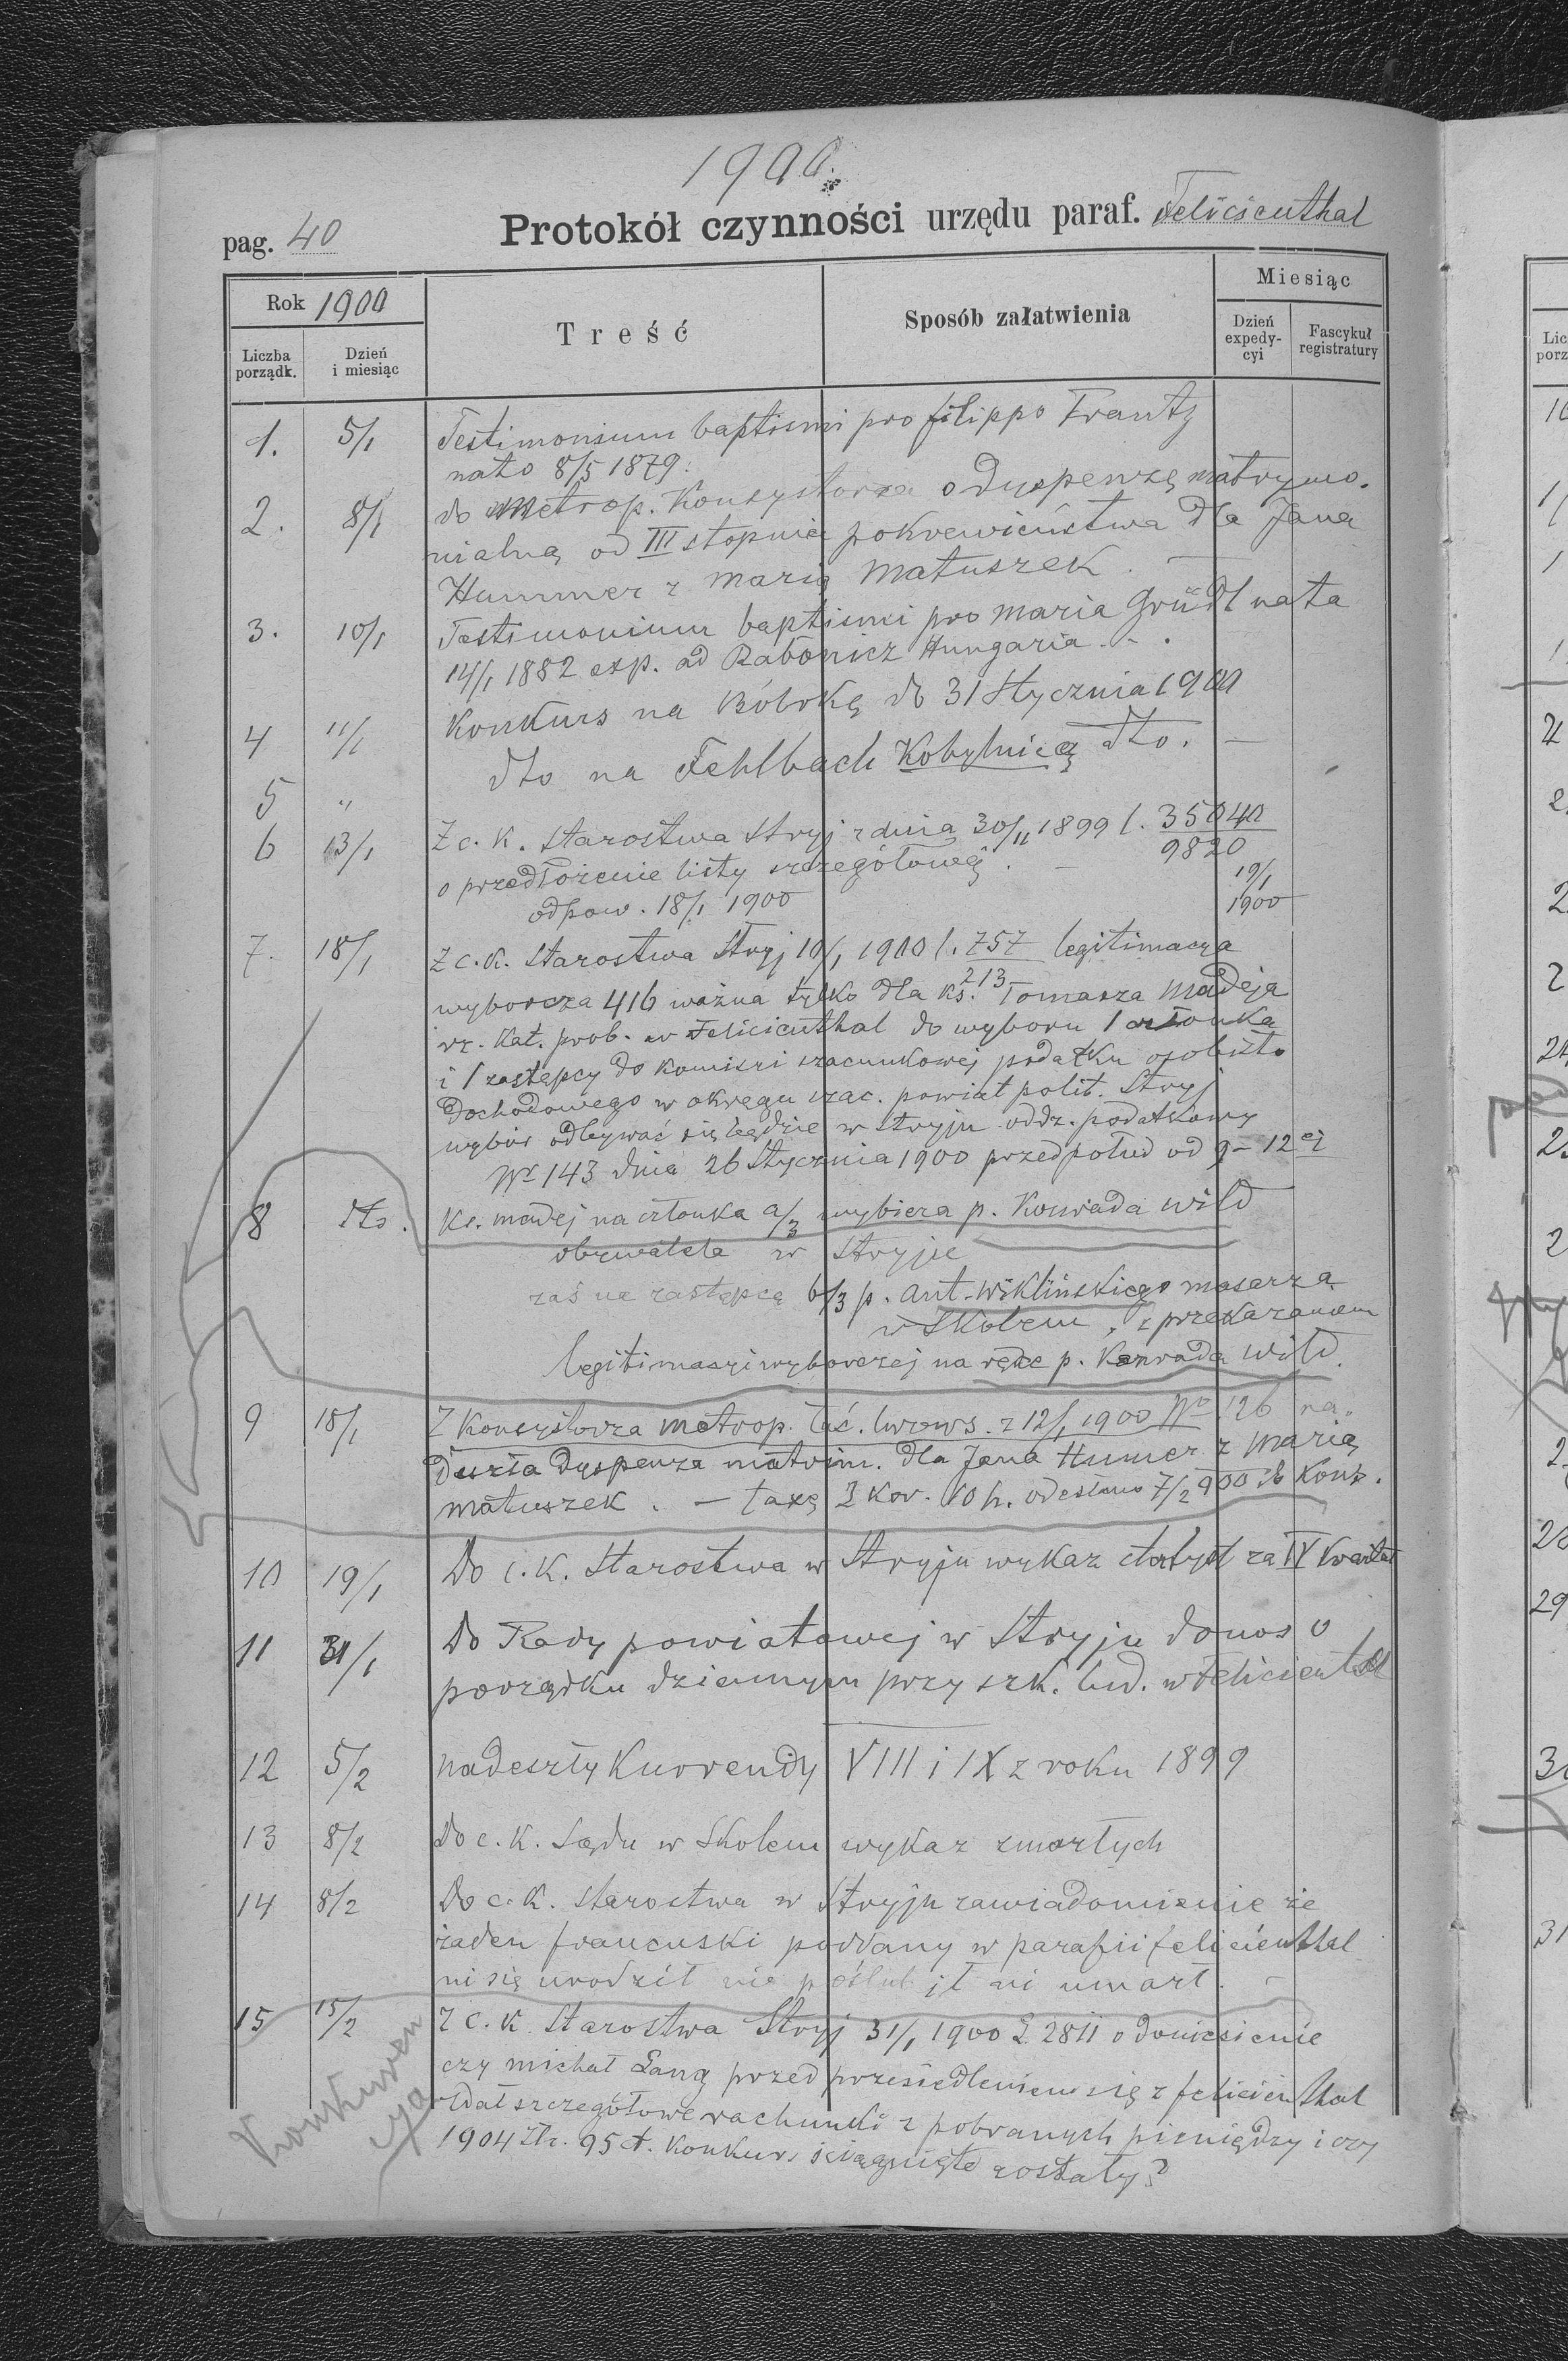 1900.
pag. 40
Protokół czynności urzędu paraf. Felicienthal
Rok 1900
Treść
Sposób załatwienia
Miesiąc
Liczba porządk.
Dzień i miesiąc
Dzień expedycyi
Fascykuł registratury
1. 5/1 Testimonium baptismi pro filippo Frantz
nato 8/5 1879.
2. 8/1 do Metrop. Konsystorza o dyspenzę matrymo.
nialną od III stopnia pokrewieństwa dla Jana
Hummer z Marią Matuszek. —
3. 10/1 Testimonium baptismi pro Maria Grüdl nata
14/1 1882 exp. ad Rabonicz Hungaria. - .
4 11/1 Konkurs na Bóbrkę do 31 Stycznia 1900
5 " dto na Fehlbach Kobylnicą dto. —
6 13/1 Z c. k. Starostwa Stryj z dnia 30/11 1899 l. 35040
9820
o przedłożenie listy szczegółowej. —
19/1
1900
odpow. 18/1 1900
7. 18/1 Z c. k. Starostwa Stryj 10/1 1900 l. 757 legitimacya
213
wyborcza 416 ważna tylko dla ks. Tomasza Madeja
rz. kat. prob. w Felicienthal do wyboru 1 członka
i 1 zastępcy do Komisri szacunkowej podatku osobisto
dochodowego w okręgu szac. powiat polit. Stryj
wybór odbywać się będzie w Stryju oddz. podatkowy
Nr 143 dnia 26 Stycznia 1900 przedpołud od 9 - 12ej
8 dto. Ks. Madej na członka a/3 wybiera p. Konrada Wild
obywatela w Stryju
zaś na zastępcę b/3 p. Ant. Wiklińskiego masarza
w Skolem, z przekazaniem
legitimasyi wyborczej na ręke p. Konrada Wild.
9 18/1 Z Konsystorza Metrop. łać. lwows. z 12/1 1900 Nr 126 na-
deszła dyspenza matrim. dla Jana Humer z Marią
Matuszek. — taxę 2 kor. 10 h. odesłano 7/2 900 do Kons.
10 19/1 Do c. k. Starostwa w Stryju wykaz za IV Kwartał
11 31/1 Do Rady powiatowej w Stryju donos o
porządku dziennym przy szk. lud. w Felicienthal
12 5/2 nadeszły Kurrendy VIII i IX z roku 1899
13 8/2 Do c. k. Sądu w Skolem wykaz zmarłych
14 8/2 Do c. k. Starostwa w Stryju zawiadomienie że
żaden francuski poddany w parafii felicienthal
ni się urodził nie poślubił ni umarł. -
15 15/2 Z c. k. Starostwa Stryj 31/1 1900 L 2811 o doniesienie
czy Michał Lang przed przesiedleniem się z felicienthal
zdał szczegółowe rachunki z pobranych pieniędzy i czy
1904 złr. 95 ct. Konkur. ściągnięte zostały?
Konkuren
cya